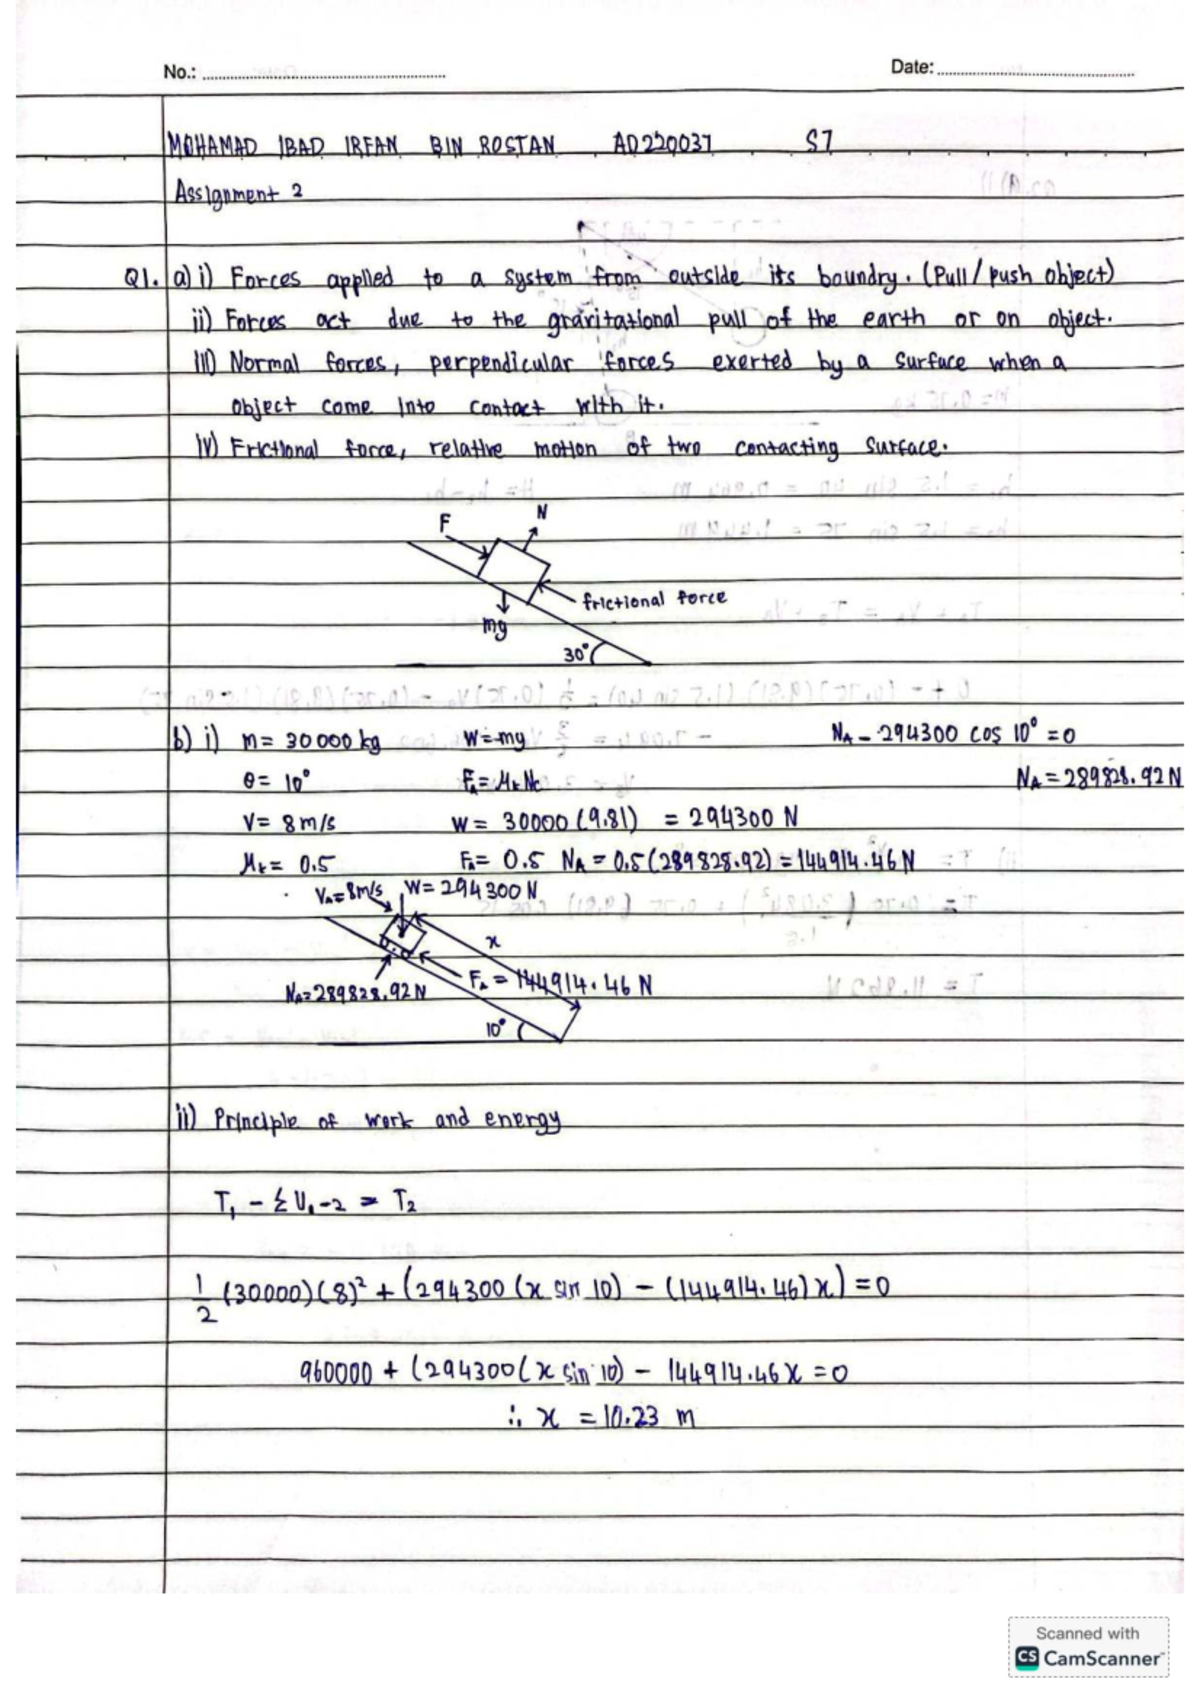 No.: Date:
MOHAMAD IBAD IRFAN BIN ROSTAN AD220037 S7
Assignment 2
Q1. a) i) Forces applied to a system from outside its boundry. (Pull / push object)
ii) Forces act due to the gravitational pull of the earth or on object.
iii) Normal forces, perpendicular forces exerted by a surface when a
object come into contact with it.
iv) Frictional force, relative motion of two contacting surface.
F N
frictional force
mg
30°
b) i) m = 30000 kg W = mg NA - 294300 cos 10° = 0
θ = 10° FA = μk Nc NA = 289828.92 N
V = 8 m/s W = 30000 (9.81) = 294300 N
μk = 0.5 FA = 0.5 NA = 0.5 (289828.92) = 144914.46 N
VA = 8m/s W = 294300 N
x
NA = 289828.92 N FA = 144914.46 N
10°
ii) Principle of work and energy
T₁ - ΣU₁-₂ = T₂
1/2 (30000) (8)² + (294300 (x sin 10) - (144914.46) x) = 0
960000 + (294300 (x sin 10) - 144914.46 x = 0
∴ x = 10.23 m
Scanned with
CS CamScanner